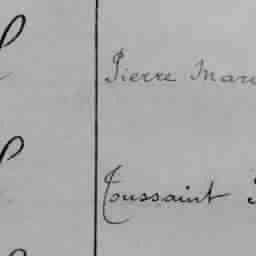 Pierre Mari
Toussaint